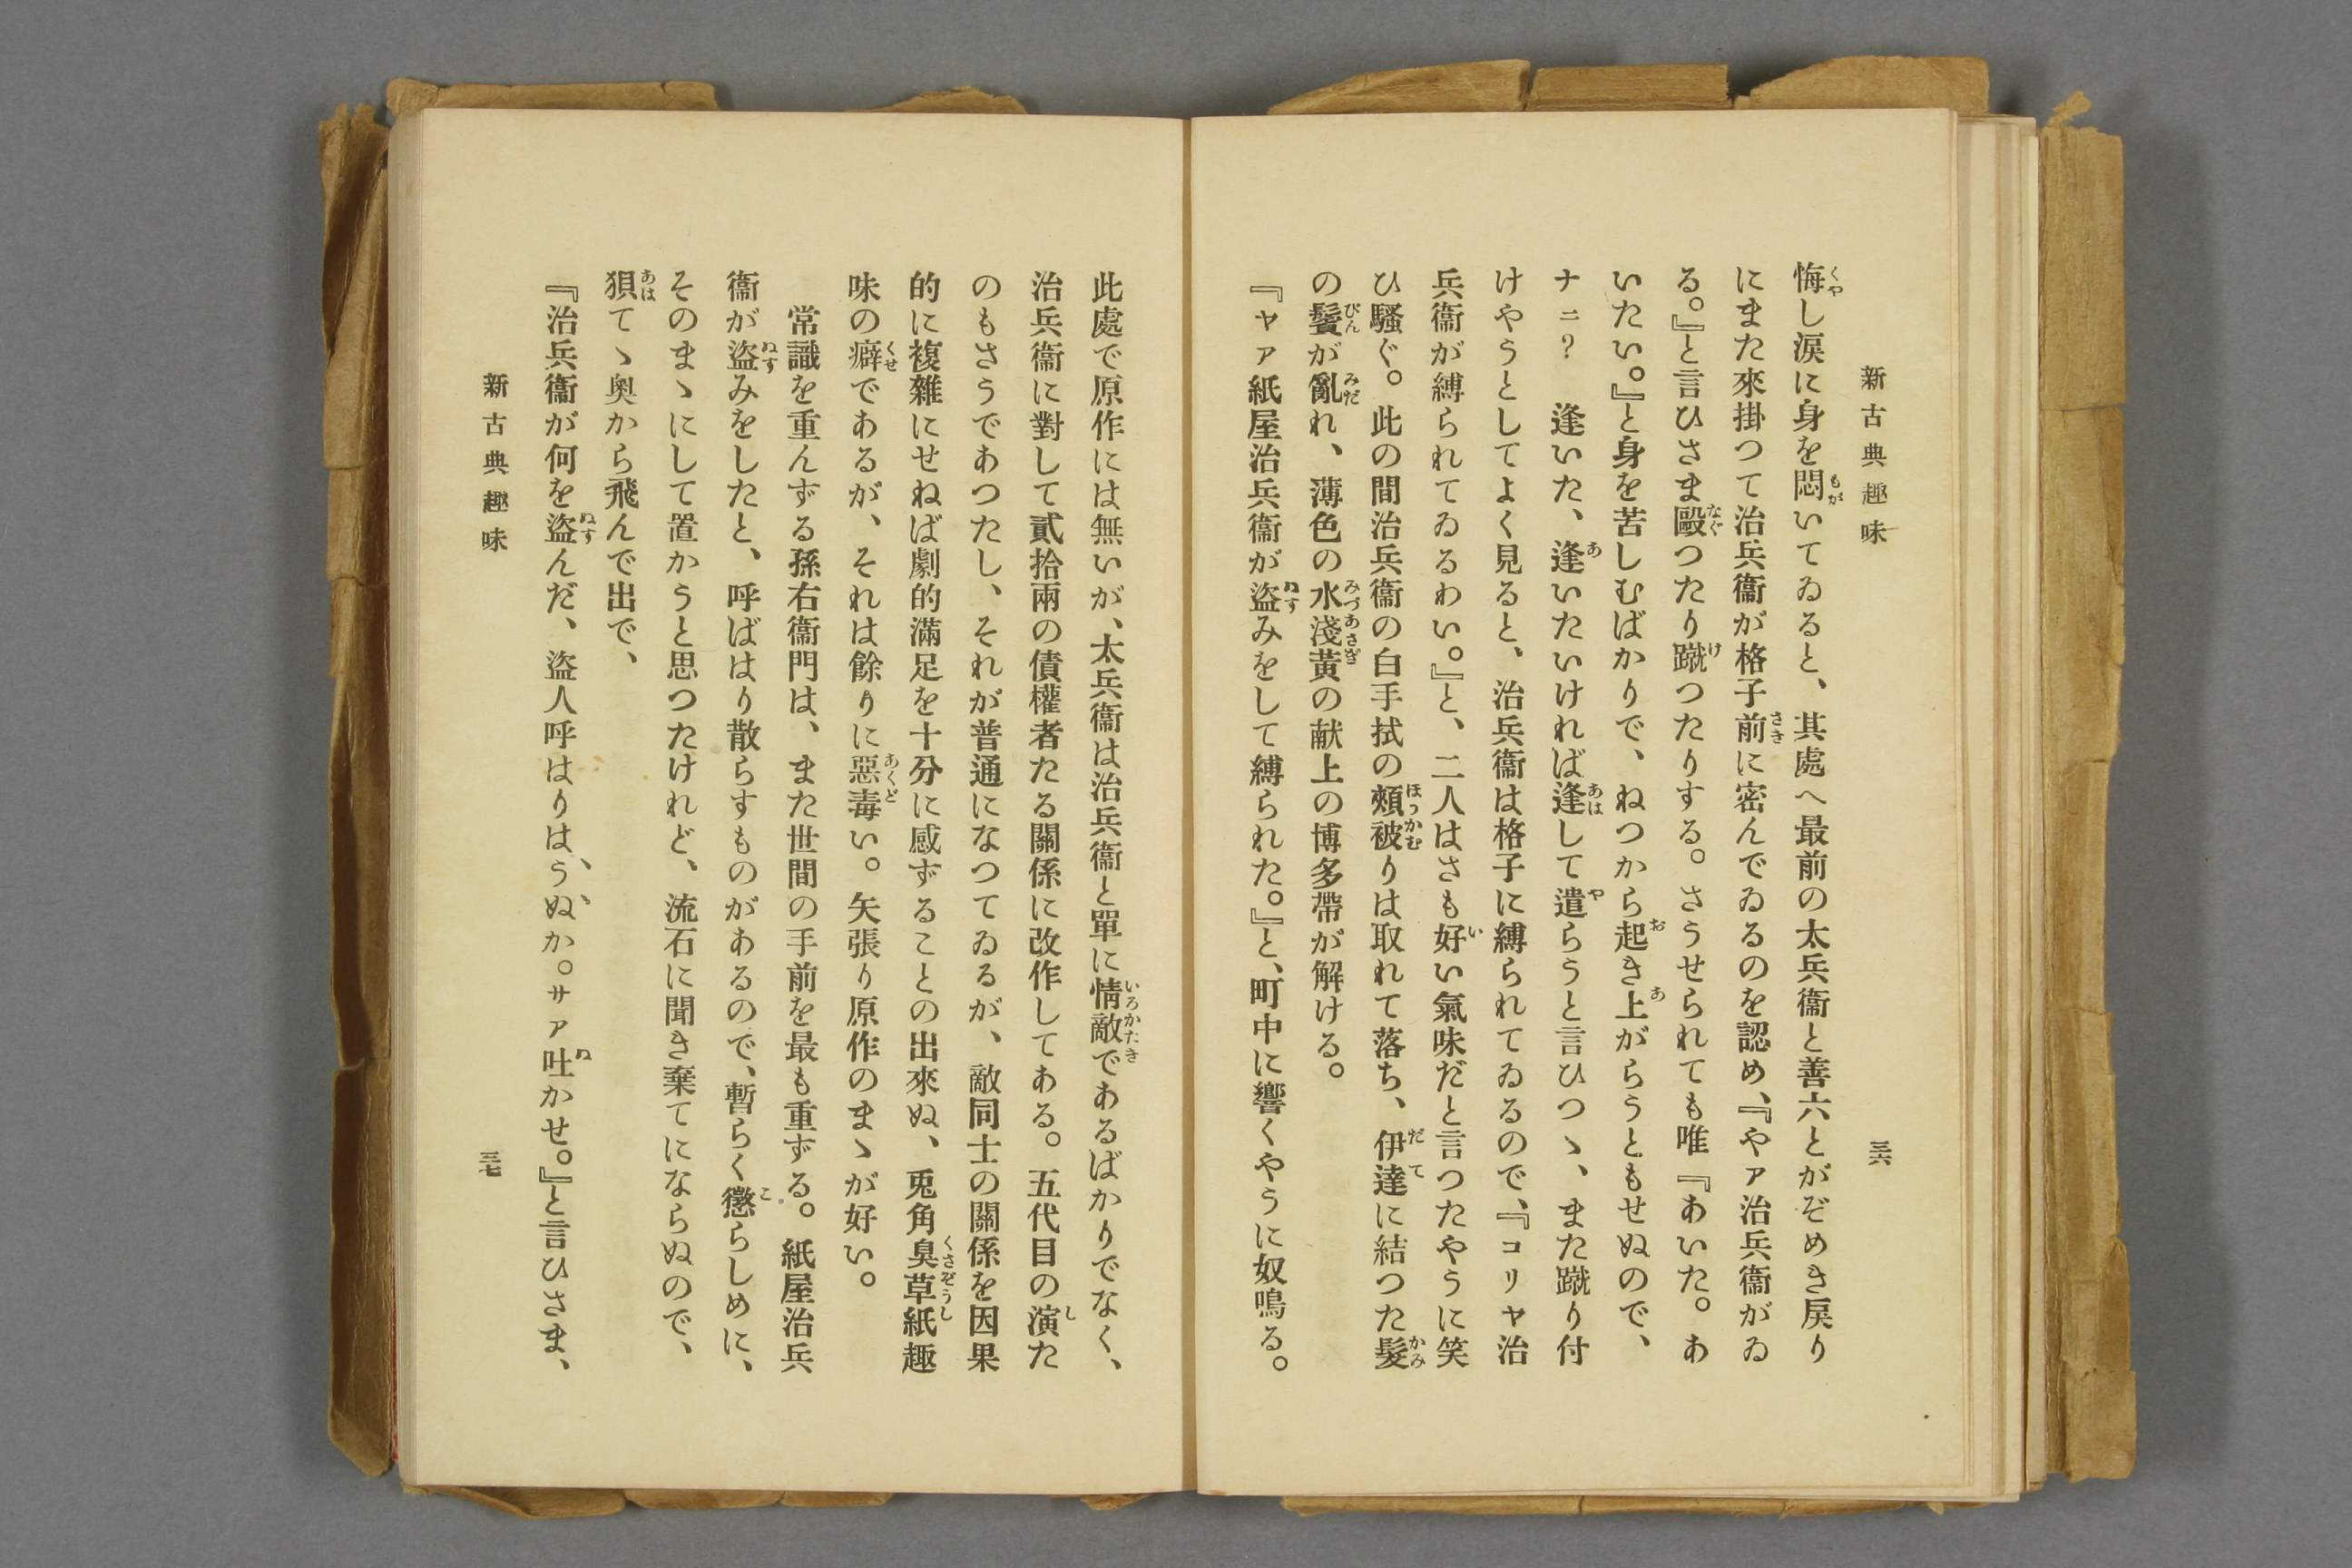 新古典趣味
三六
悔し涙に身を悶いてゐると、其處へ最前の太兵衞と善六とがぞめき戻り
にまた來掛つて治兵衞が格子前に密んでゐるのを認め、『やァ治兵衞がゐ
る。』と言ひさま毆つたり蹴つたりする。さうせられても唯『あいた。あ
いたい。』と身を苦しむばかりで、ねつから起き上がらうともせぬので、
ナニ?　逢いた、逢いたいければ逢して遣らうと言ひつゝ、また蹴り付
けやうとしてよく見ると、治兵衞は格子に縛られてゐるので、『コリヤ治
兵衞が縛られてゐるわい。』と、二人はさも好い氣味だと言つたやうに笑
ひ騷ぐ。此の間治兵衞の白手拭の頰被りは取れて落ち、伊達に結つた髮
の鬢が亂れ、薄色の水淺黃の献上の博多帶が解ける。
『ヤァ紙屋治兵衞が盜みをして縛られた。』と、町中に響くやうに奴鳴る。
此處で原作には無いが、太兵衞は治兵衞と單に情敵であるばかりでなく、
治兵衞に對して貳拾兩の債權者たる關係に改作してある。五代目の演た
のもさうであつたし、それが普通になつてゐるが、敵同士の關係を因果
的に複雜にせねば劇的滿足を十分に感ずることの出來ぬ、兎角臭草紙趣
味の癖であるが、それは餘りに惡毒い。矢張り原作のまゝが好い。
常識を重んずる孫右衞門は、また世間の手前を最も重ずる。紙屋治兵
衞が盜みをしたと、呼ばはり散らすものがあるので、暫らく懲らしめに、
そのまゝにして置かうと思つたけれど、流石に聞き棄てにならぬので、
狽てゝ奧から飛んで出で、
『治兵衞が何を盜んだ、盜人呼はりは、うぬか。サァ吐かせ。』と言ひさま、
新古典趣味
三七